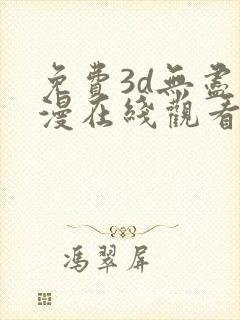 免費3d無盡
漫在綫觀看
馮翠屏